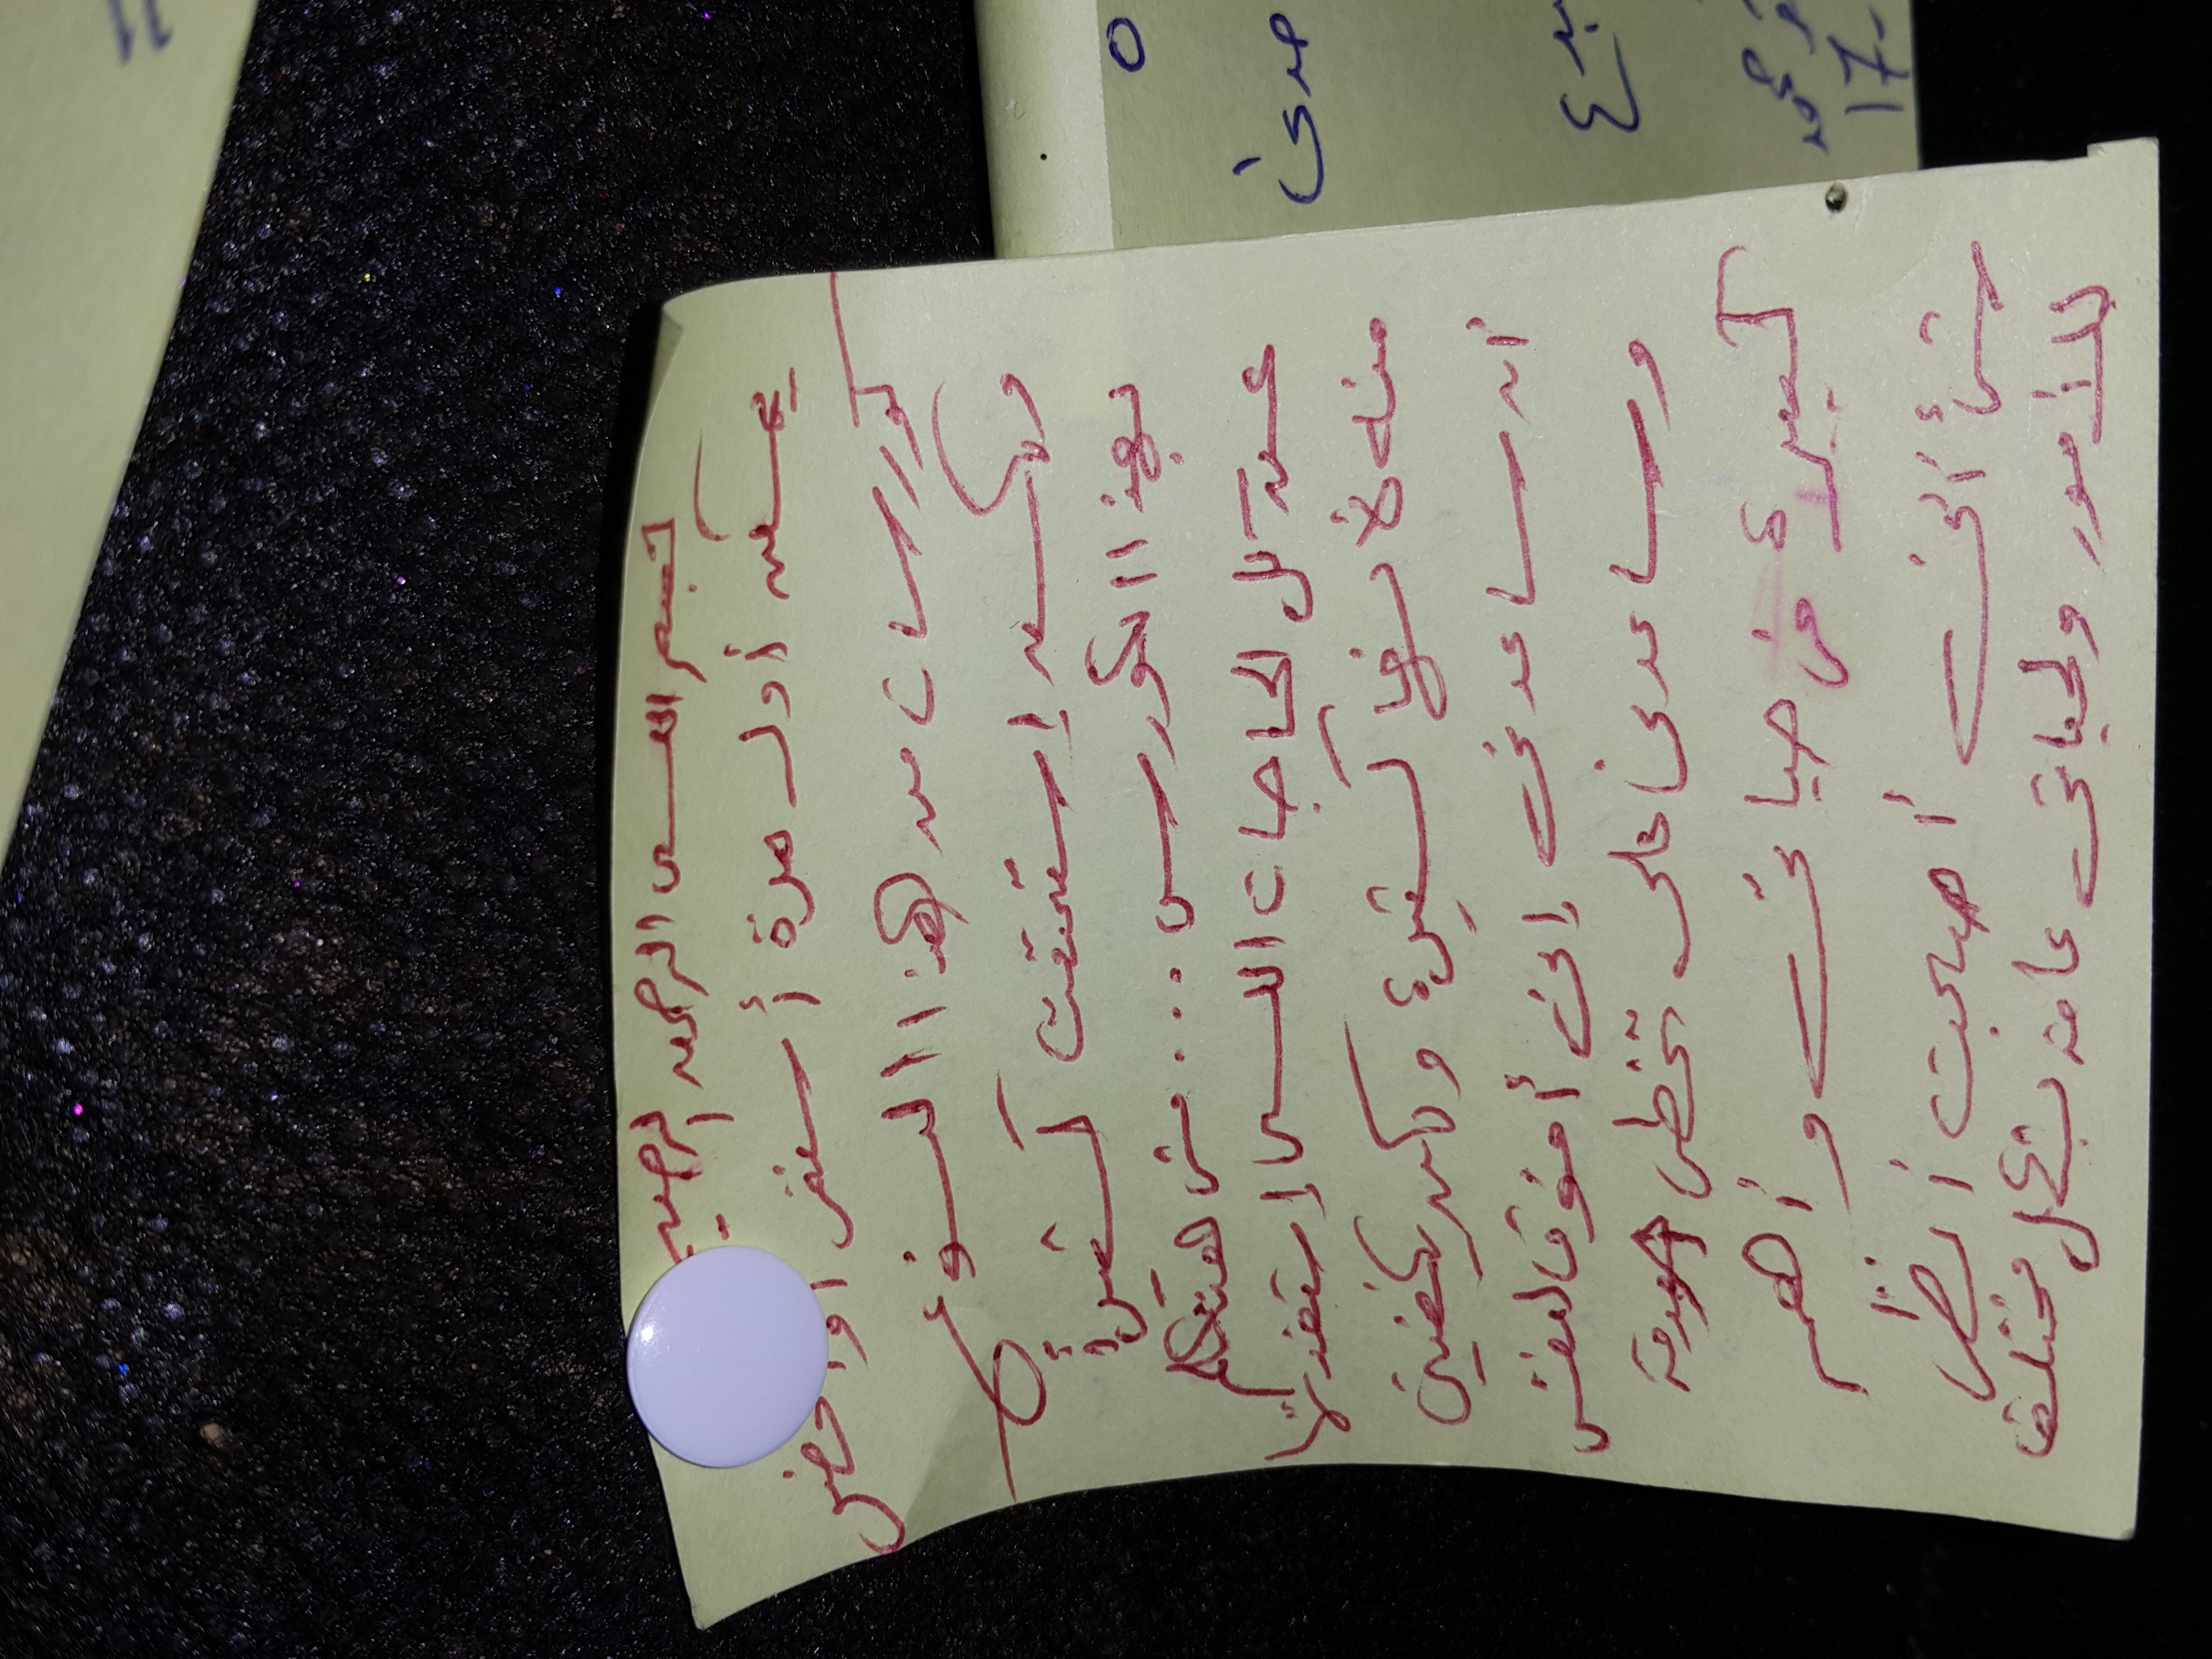 بسم الله الرحمن الرحيم
يمكن أول مرة أستفر أو احضر
كورسات من هذا النوع
ولكن إستمتعت كثيراً
بهذا الكورس ... مش هتكلم
عن كل الحاجات اللى إستفدتها
منه لأنها كتيرة ولكن يكفينى
أن ساعدنى إنى أفوق لنفسى
وساعدنى على تخطى صدمة
كبيرة فى حياتى وأهم
شئ أننى أصبحت أنظر
للأمور ولحياتى عامة بشكل مختلف
صدى
محمد
17-